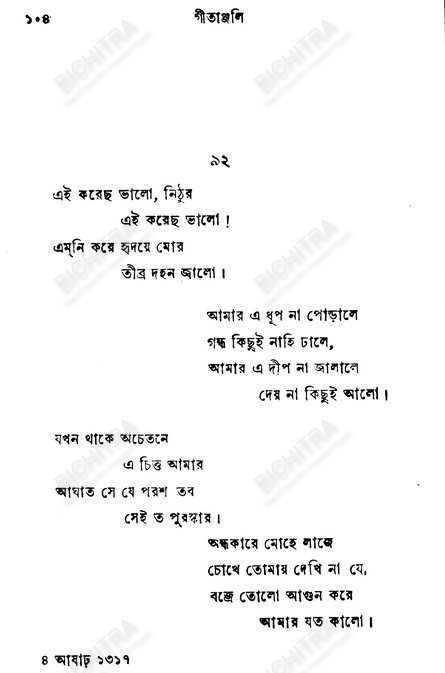 ১০৪
গীতাঞ্জলি
৯২
এই করেছ ভালো, নিঠুর
এই করেছ ভালো !
এম্‌নি করে হৃদয়ে মোর
তীব্র দহন জ্বালো ।
আমার এ ধূপ না পোড়ালে
গন্ধ কিছুই নাহি ঢালে,
আমার এ দীপ না জ্বালালে
দেয় না কিছুই আলো ।
যখন থাকে অচেতনে
এ চিত্ত আমার
আঘাত সে যে পরশ তব
সেই ত পুরস্কার ।
অন্ধকারে মোহে লাজে
চোখে তোমায় দেখি না যে,
বজ্রে তোলো আগুন করে
আমার যত কালো ।
৪ আষাঢ় ১৩১৭
BICHITRA
BICHITRA
BICHITRA
BICHITRA
BICHITRA
BICHITRA
BICHITRA
BICHITRA